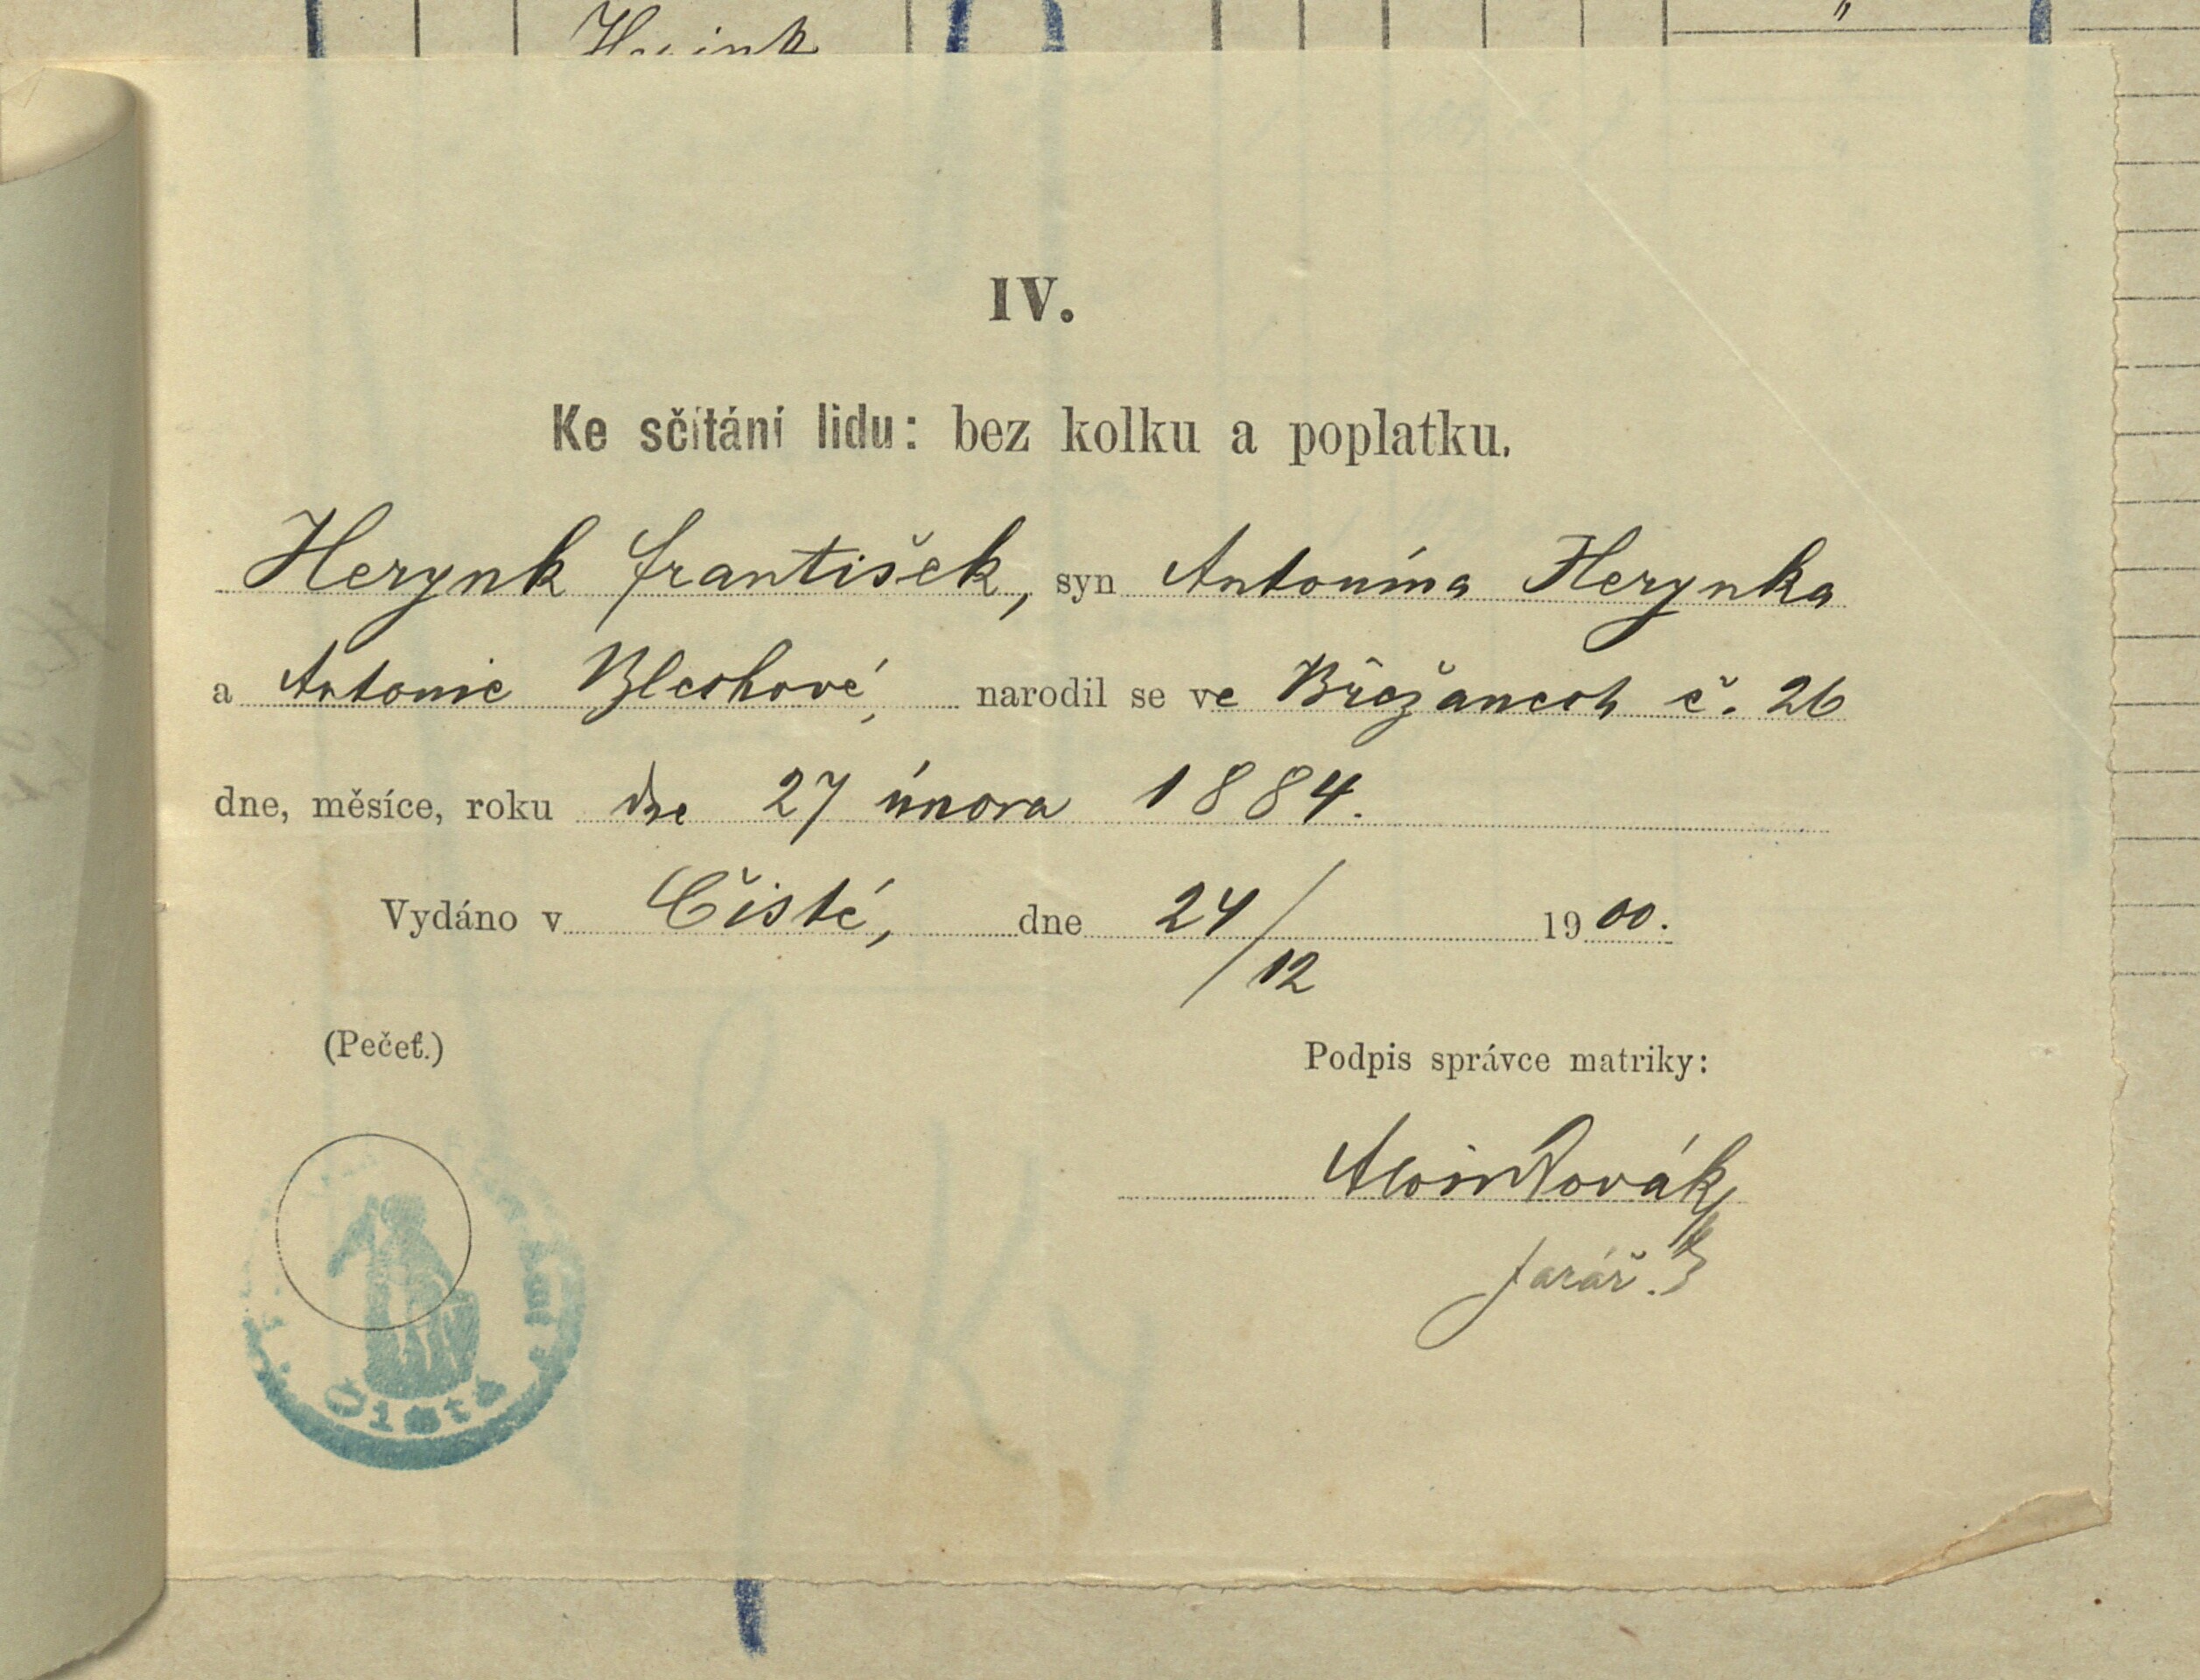 IV.
Ke sčítání lidu: bez kolku a poplatku.
Herynk František, syn Antonína Herynka
a Antonie Blechové, narodil se ve Břežanech č. 26
dne, měsíce, roku dne 27 února 1884.
Vydáno v Čisté, dne 24/12 1900.
(Pečeť.)
Podpis správce matriky:
Alois Novák
farář.
Čistá